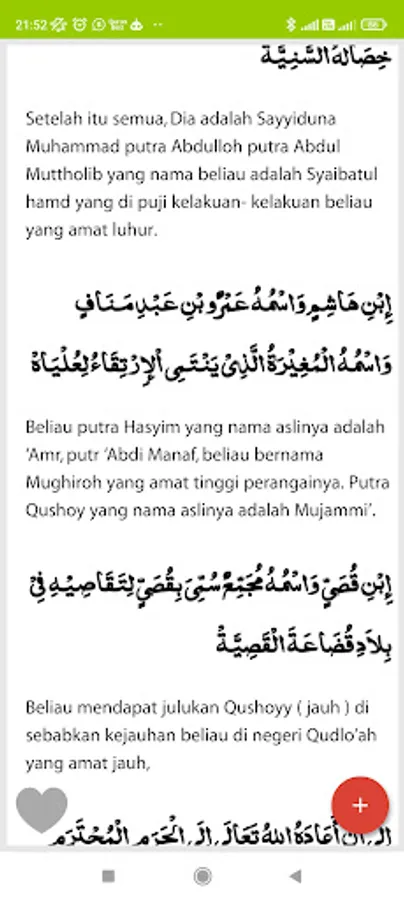 21:52
خِصَالُهُ السَّنِيَّةُ
Setelah itu semua, Dia adalah Sayyiduna
Muhammad putra Abdulloh putra Abdul
Muttholib yang nama beliau adalah Syaibatul
hamd yang di puji kelakuan- kelakuan beliau
yang amat luhur.
اِبْنِ هَاشِمٍ وَاسْمُهُ عَمْرُو بْنِ عَبْدِ مَنَافٍ
وَاسْمُهُ الْمُغِيْرَةُ الَّذِىْ يَنْتَمِى الْاِرْتِقَاءُ لِعُلْيَاهْ
Beliau putra Hasyim yang nama aslinya adalah
‘Amr, putr ‘Abdi Manaf, beliau bernama
Mughiroh yang amat tinggi perangainya. Putra
Qushoy yang nama aslinya adalah Mujammi’.
اِبْنِ قُصَيٍّ وَاسْمُهُ مُجَمِّعٌ سُمِّىَ بِقُصَيٍّ لِتَقَاصِيْهِ فِىْ
بِلَادِ قُضَاعَةَ الْقَصِيَّةْ
Beliau mendapat julukan Qushoyy ( jauh ) di
sebabkan kejauhan beliau di negeri Qudlo’ah
yang amat jauh,
اِلَى اَنْ اَعَادَهُ اللهُ تَعَالَى اِلَى الْحَرَمِ الْمُحْتَرَمِ